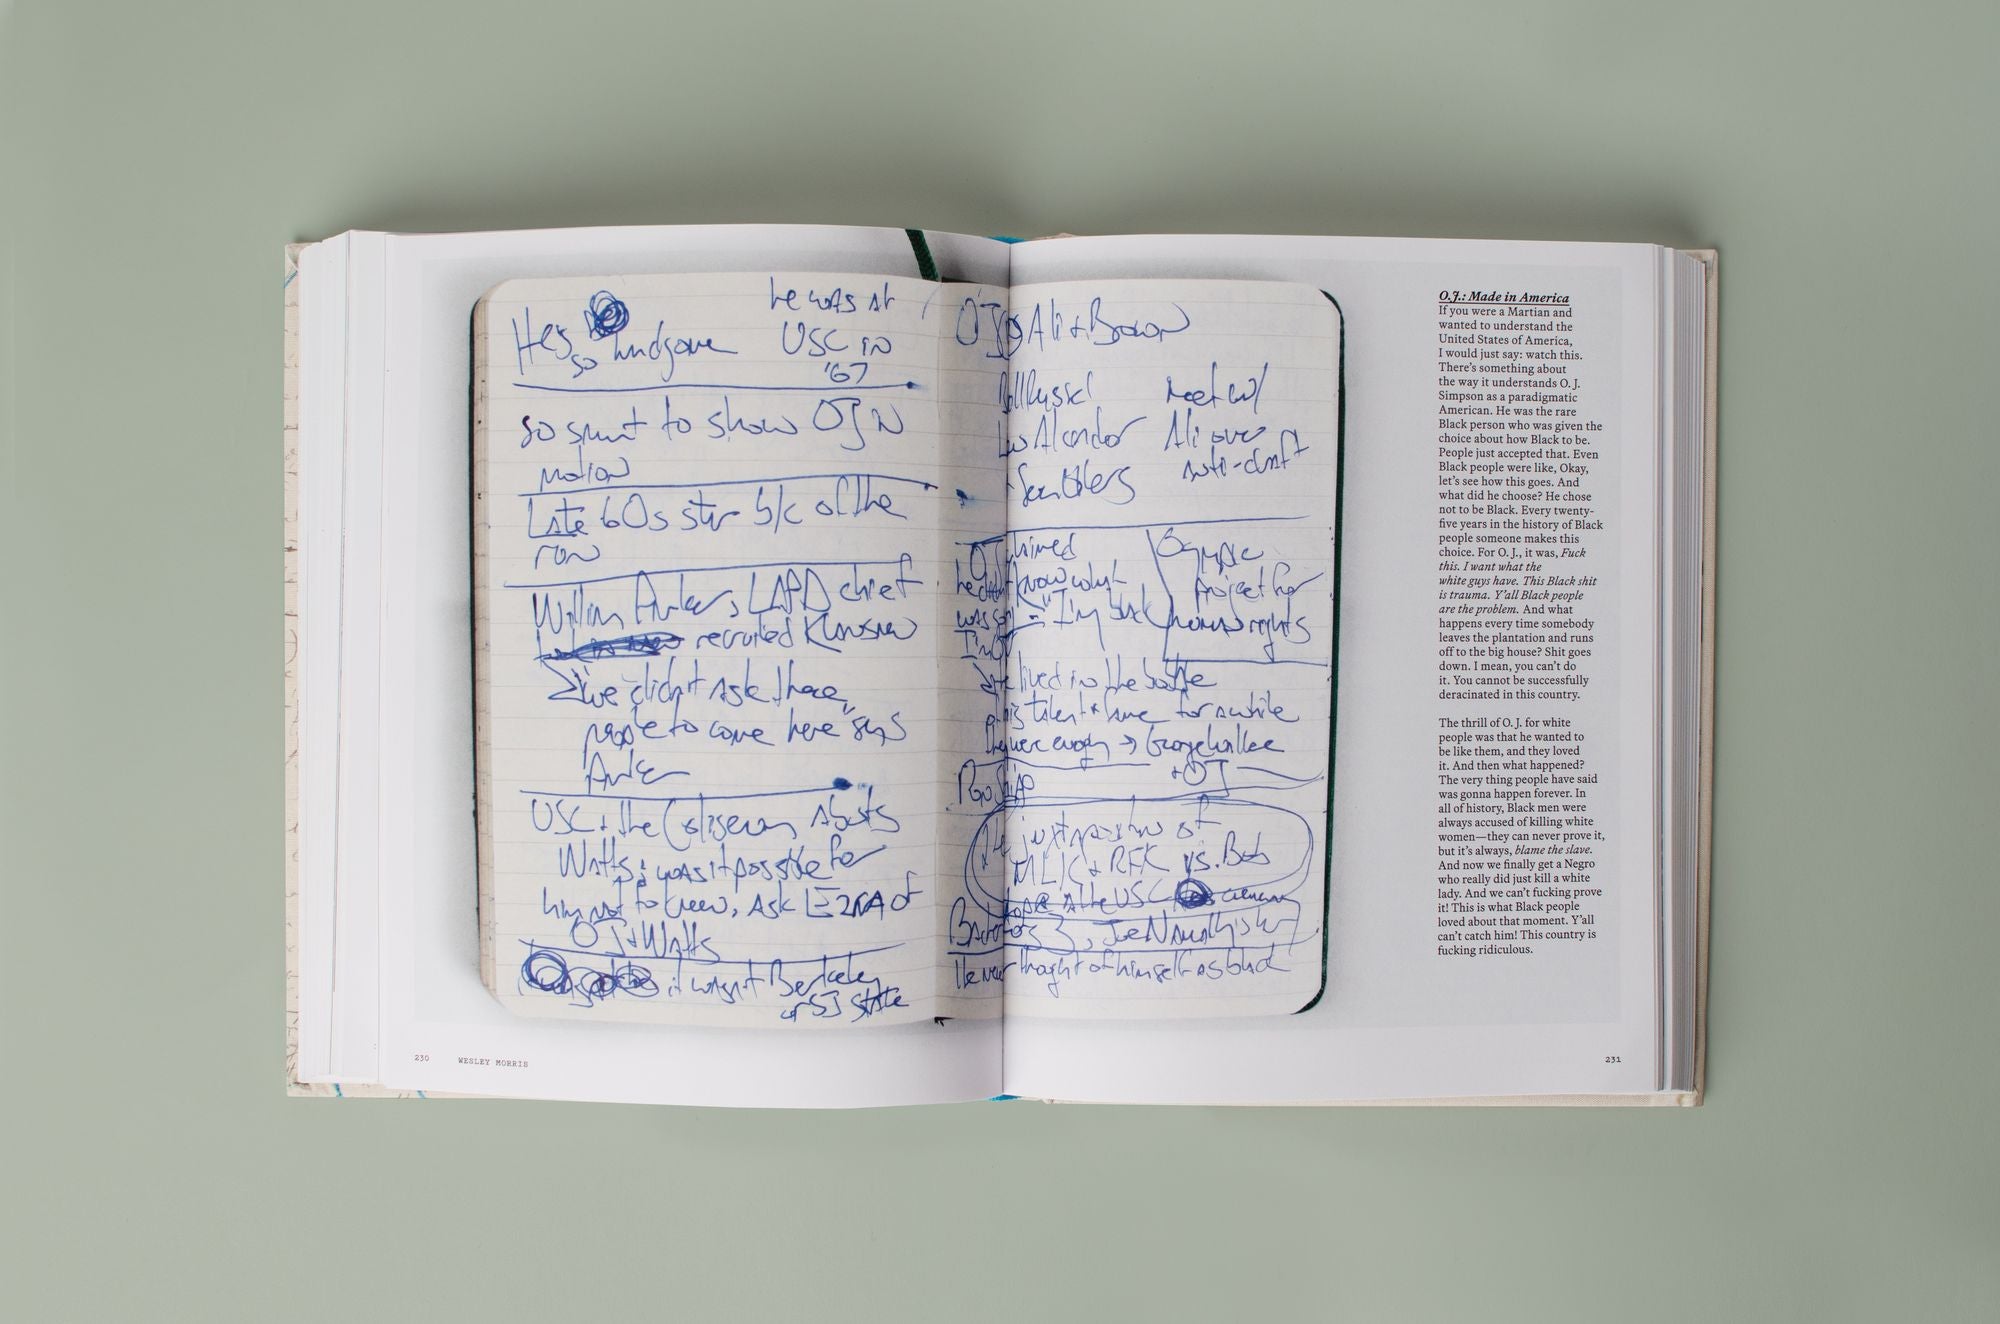 He's so handsome
he was at
USC in
'67
so smart to show OJ in
motion
Late 60s star b/c of the
run
William Parker, LAPD chief
recruited Klansmen
"we didn't ask these
people to come here," says
Parker
USC + the Coliseum abuts
Watts: was it possible for
him not to know. Ask EZRA of
OJ + Watts
it wasn't Berkeley
or SJ State
OJ Ali + Brown
Bill Russell
Lew Alcindor
meet w/
Ali over
anti-draft
Olympic
project for
human rights
"I'm black
lived in the bottle
his talent + fame for a while
they were enough → George Wallace
+ OJ
the juxtaposition of
MLK + RFK vs. Bob
Hope @ the USC
he never thought of himself as black
230 WESLEY MORRIS
O.J.: Made in America
If you were a Martian and
wanted to understand the
United States of America,
I would just say: watch this.
There's something about
the way it understands O. J.
Simpson as a paradigmatic
American. He was the rare
Black person who was given the
choice about how Black to be.
People just accepted that. Even
Black people were like, Okay,
let's see how this goes. And
what did he choose? He chose
not to be Black. Every twenty-
five years in the history of Black
people someone makes this
choice. For O. J., it was, Fuck
this. I want what the
white guys have. This Black shit
is trauma. Y'all Black people
are the problem. And what
happens every time somebody
leaves the plantation and runs
off to the big house? Shit goes
down. I mean, you can't do
it. You cannot be successfully
deracinated in this country.
The thrill of O. J. for white
people was that he wanted to
be like them, and they loved
it. And then what happened?
The very thing people have said
was gonna happen forever. In
all of history, Black men were
always accused of killing white
women—they can never prove it,
but it's always, blame the slave.
And now we finally get a Negro
who really did just kill a white
lady. And we can't fucking prove
it! This is what Black people
loved about that moment. Y'all
can't catch him! This country is
fucking ridiculous.
231